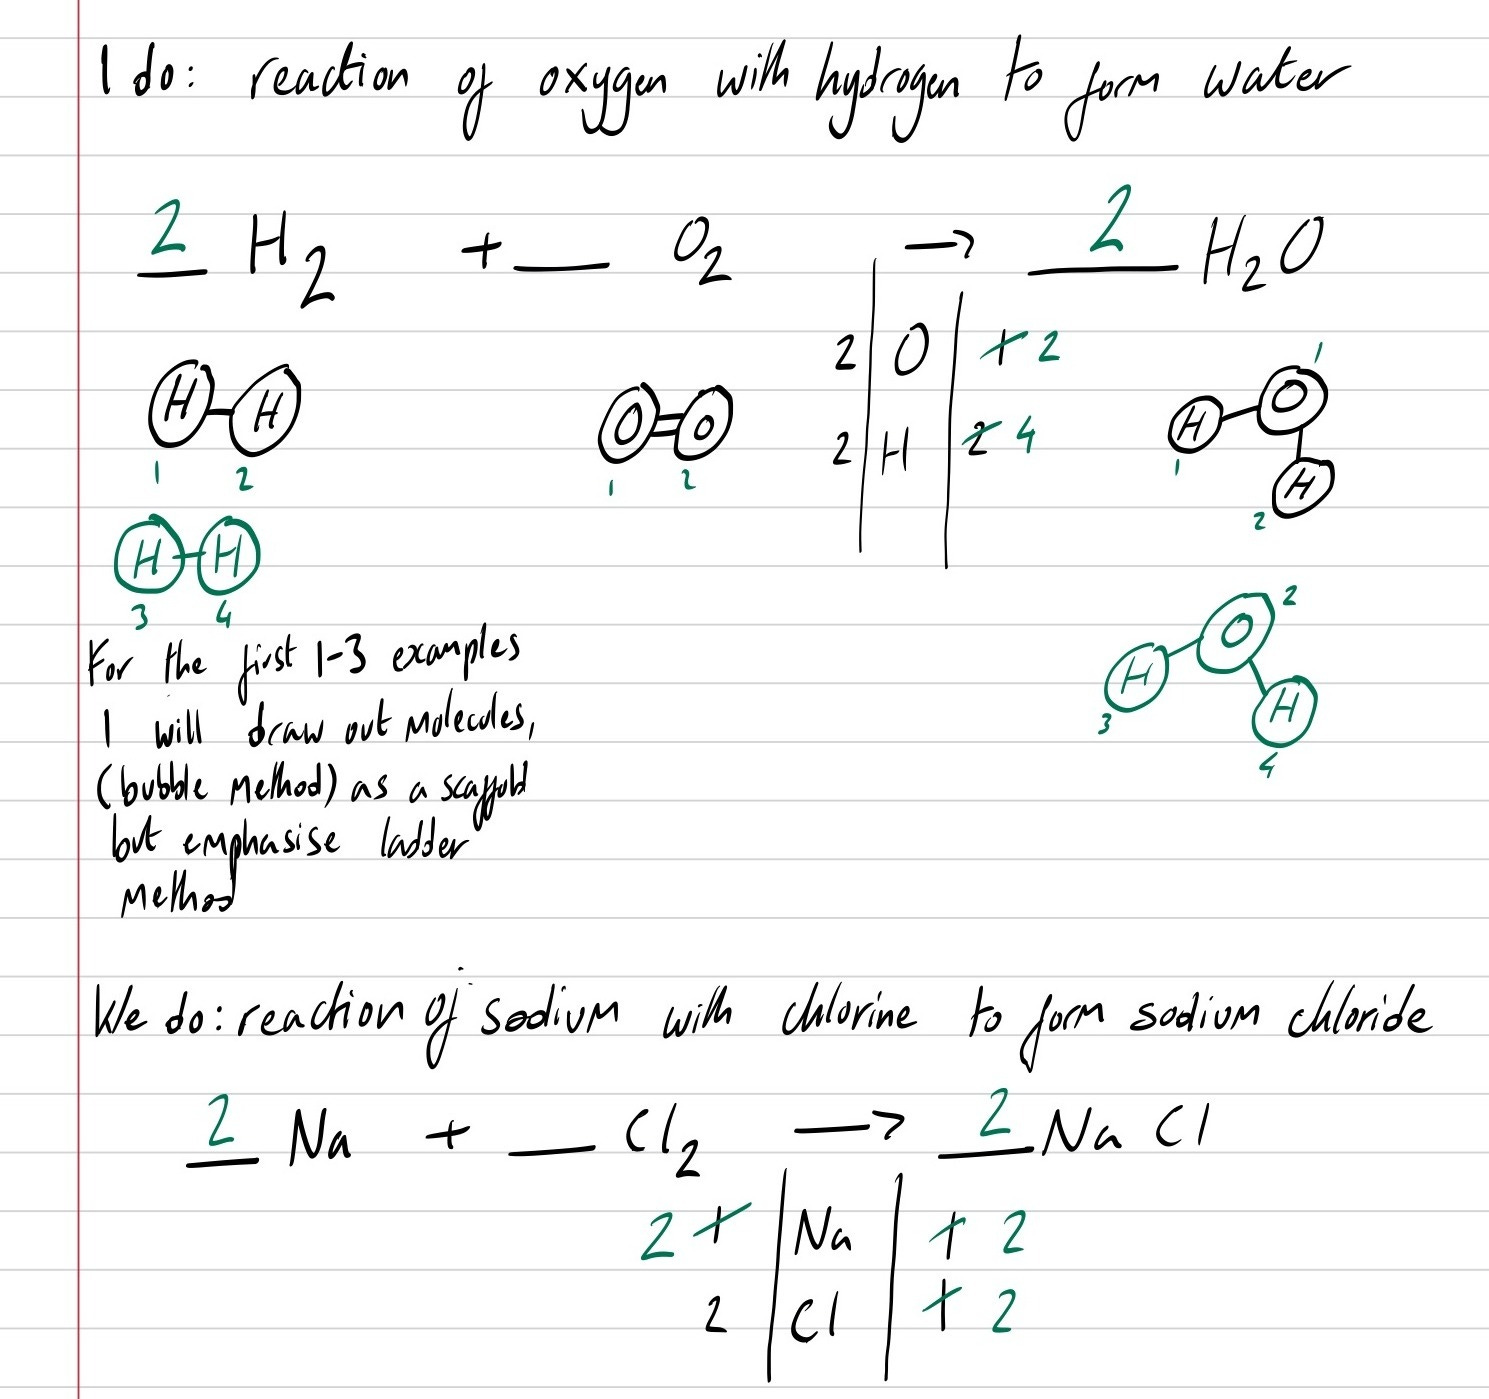 I do: reaction of oxygen with hydrogen to form water
2 H2 + __ O2 → 2 H2O
2 | O | 1 2
H H O O H O 1
2 | H | 2 4
1 2 1 2 1 H
2
H H
3 4 O 2
For the first 1-3 examples
H
I will draw out molecules,
3 H
(bubble method) as a scaffold
4
but emphasise ladder
method
We do: reaction of sodium with chlorine to form sodium chloride
2 Na + __ Cl2 → 2 NaCl
2 1 | Na | 1 2
2 | Cl | 1 2